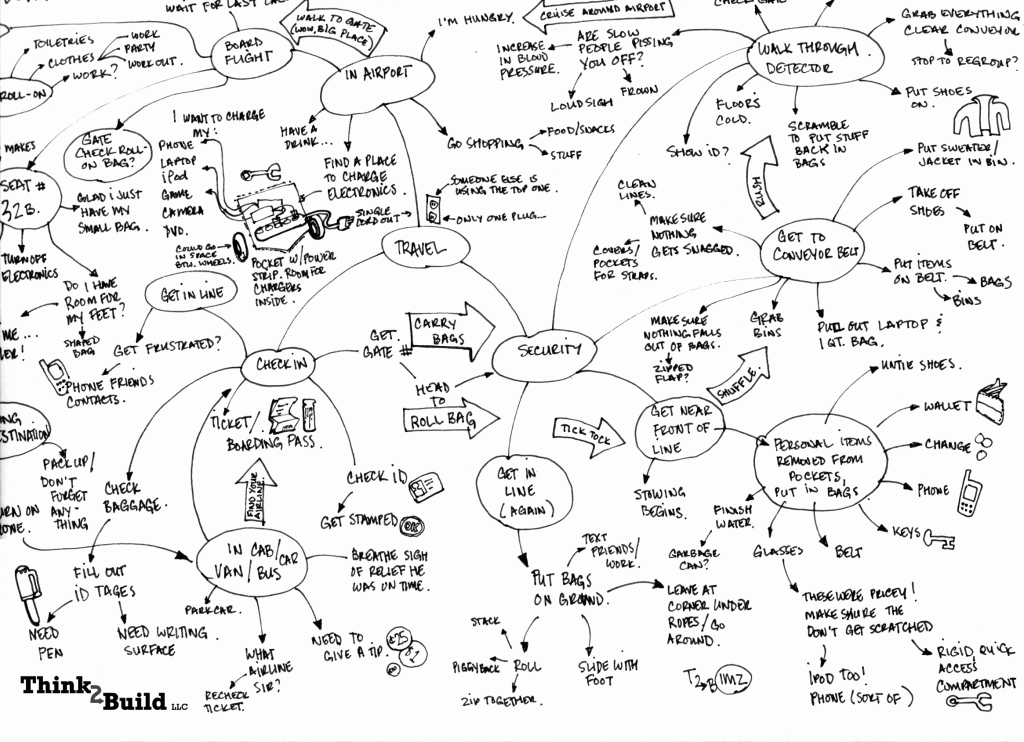 WAIT FOR LAST CAL
TOILETRIES
CLOTHES
WORK
PARTY
WORK OUT.
WORK?
ROLL-ON
BOARD
FLIGHT
WALK TO GATE
WOW, BIG PLACE
IN AIRPORT
I'M HUNGRY.
CRUISE AROUND AIRPORT
CHECK GATE
INCREASE
IN BLOOD
PRESSURE.
ARE SLOW
PEOPLE PISSING
YOU OFF?
LOUD SIGH
FROWN
WALK THROUGH
DETECTOR
GRAB EVERYTHING
CLEAR CONVEYOR
STOP TO REGROUP?
PUT SHOES
ON.
FLOORS
COLD.
SHOW ID?
SCRAMBLE
TO PUT STUFF
BACK IN
BAGS
PUT SWEATER/
JACKET IN BIN.
MAKES
GATE
CHECK ROLL-
ON BAG?
I WANT TO CHARGE
MY:
PHONE
LAPTOP
iPod
GAME
CAMERA
DVD.
HAVE A
DRINK...
FIND A PLACE
TO CHARGE
ELECTRONICS.
GO SHOPPING
FOOD/SNACKS
STUFF
SEAT #
32B.
GLAD I JUST
HAVE MY
SMALL BAG.
TURN OFF
ELECTRONICS
COULD GO
IN SPACE
BTW. WHEELS.
SINGLE
CORD OUT
POCKET W/POWER
STRIP. ROOM FOR
CHARGERS
INSIDE.
SOMEONE ELSE IS
USING THE TOP ONE.
ONLY ONE PLUG...
TRAVEL
CLEAN
LINES.
MAKE SURE
NOTHING
GETS SNAGGED.
COVERS/
POCKETS
FOR STRAPS.
GET TO
CONVEYOR BELT
TAKE OFF
SHOES
PUT ON
BELT.
PUT ITEMS
ON BELT.
BAGS
BINS
DO I HAVE
ROOM FOR
MY FEET?
SHAPED
BAG
ME...
GET IN LINE
GET FRUSTRATED?
PHONE FRIENDS
CONTACTS.
CHECK IN
GET
GATE #
CARRY
BAGS
HEAD
TO
ROLL BAG
SECURITY
MAKE SURE
NOTHING FALLS
OUT OF BAGS.
ZIPPED
FLAP?
GRAB
BINS
PULL OUT LAPTOP &
1 QT. BAG.
SHUFFLE.
TICKET/
BOARDING PASS.
TICK TOCK
GET NEAR
FRONT OF
LINE
STOWING
BEGINS.
PERSONAL ITEMS
REMOVED FROM
POCKETS,
PUT IN BAGS
UNTIE SHOES.
WALLET
CHANGE
PHONE
KEYS
BELT
GLASSES
FINISH
WATER.
GARBAGE
CAN?
PACK UP/
DON'T
FORGET
ANY-
THING
CHECK
BAGGAGE.
FIND YOUR
AIRLINE.
CHECK ID
GET STAMPED
GET IN
LINE
(AGAIN)
FILL OUT
ID TAGES
NEED
PEN
NEED WRITING
SURFACE
IN CAB/CAR
VAN/BUS
BREATHE SIGH
OF RELIEF HE
WAS ON TIME.
PARK CAR.
WHAT
AIRLINE
SIR?
RECHECK
TICKET.
NEED TO
GIVE A TIP.
PUT BAGS
ON GROUND.
TEXT
FRIENDS/
WORK.
LEAVE AT
CORNER UNDER
ROPES/GO
AROUND.
STACK
PIGGYBACK
ROLL
ZIP TOGETHER.
SLIDE WITH
FOOT
THESE WERE PRICEY!
MAKE SHURE THE
DON'T GET SCRATCHED
iPOD TOO!
PHONE (SORT OF)
RIGID QUICK
ACCESS
COMPARTMENT
Think
2
Build LLC